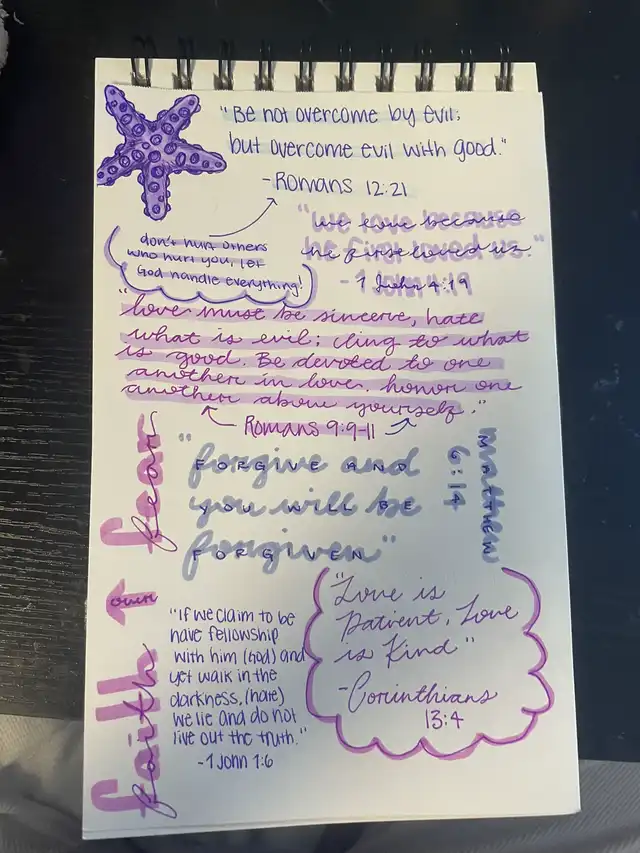 "Be not overcome by evil;
but overcome evil with good."
-Romans 12:21
don't hurt others
who hurt you, let
God handle everything!
"we love because
he first loved us."
- 1 John 4:19
"love must be sincere, hate
what is evil; cling to what
is good. Be devoted to one
another in love. honor one
another above yourself."
Romans 9:9-11
"forgive and
FORGIVE AND
you will be
YOU WILL BE
forgiven"
FORGIVEN
matthew
MATTHEW
6:14
faith over fear
"If we claim to be
have fellowship
with him (God) and
yet walk in the
darkness, (hate)
we lie and do not
live out the truth."
-1 John 1:6
"Love is
Patient, Love
is Kind"
-Corinthians
13:4